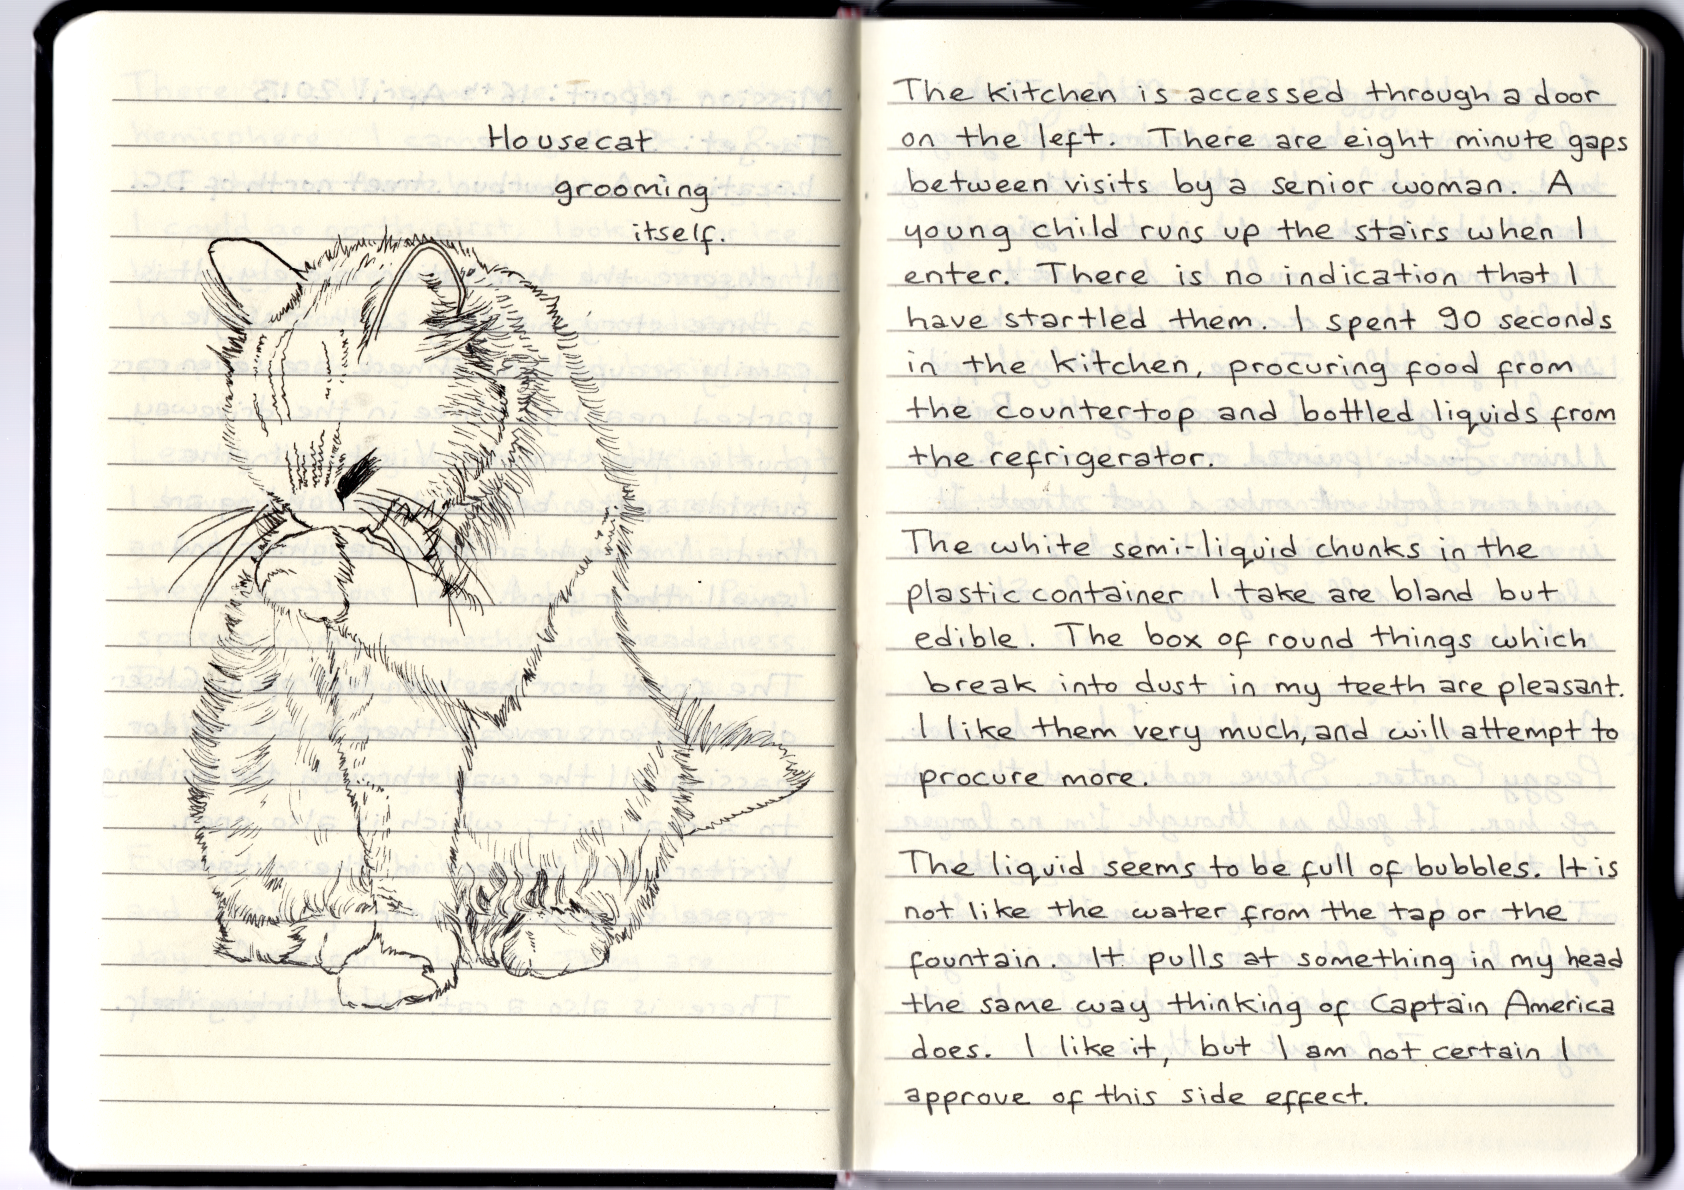 Housecat
grooming
itself.
The kitchen is accessed through a door
on the left. There are eight minute gaps
between visits by a senior woman. A
young child runs up the stairs when I
enter. There is no indication that I
have startled them. I spent 90 seconds
in the kitchen, procuring food from
the countertop and bottled liquids from
the refrigerator.
The white semi-liquid chunks in the
plastic container I take are bland but
edible. The box of round things which
break into dust in my teeth are pleasant.
I like them very much, and will attempt to
procure more.
The liquid seems to be full of bubbles. It is
not like the water from the tap or the
fountain. It pulls at something in my head
the same way thinking of Captain America
does. I like it, but I am not certain I
approve of this side effect.